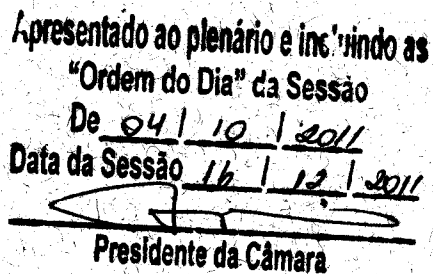 Apresentado ao plenário e incluindo as
“Ordem do Dia” da Sessão
De 04 | 10 | 2011
Data da Sessão 16 | 12 | 2011
Presidente da Câmara